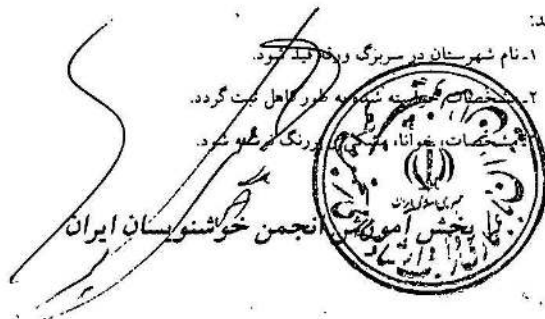 د:
۱ـ نام شهرستان در سربرگ ورقه قید شود.
۲ـ مشخصات خواسته شده به طور کامل ثبت گردد.
مشخصات، خوانا، مشکی و پررنگ نوشته شود.
جمهوری اسلامی ایران
بخش آموزش انجمن خوشنویسان ایران